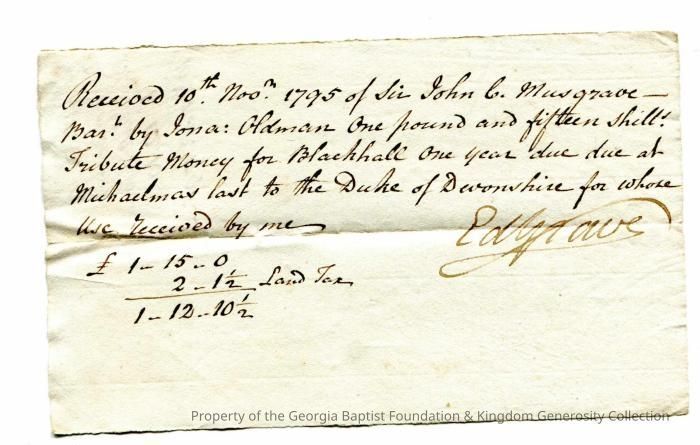 Received 10th. Novr. 1795 of Sir John C. Musgrave —
Bart. by Jona: Oldman One pound and fifteen shills.
Tribute Money for Blackhall One year due due at
Michaelmas last to the Duke of Devonshire for whose
Use received by me
£ 1 - 15 - 0
2 - 1½ Land Tax
1 - 12 - 10½
Property of the Georgia Baptist Foundation & Kingdom Generosity Collection